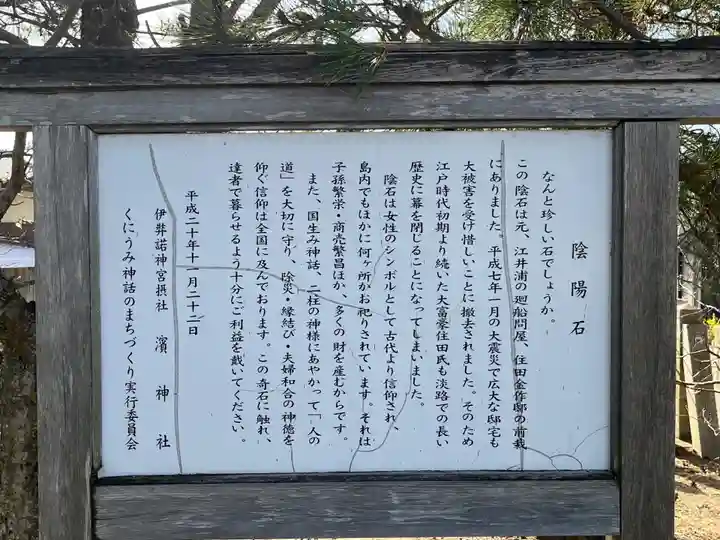 陰陽石
なんと珍しい石でしょうか。
この陰石は元、江井浦の廻船問屋、住田金作邸の前栽
にありました。平成七年一月の大震災で広大な邸宅も
大被害を受け惜しいことに撤去されました。そのため
江戸時代初期より続いた大富豪住田氏も淡路での長い
歴史に幕を閉じることになってしまいました。
陰石は女性のシンボルとして古代より信仰され、
島内でもほかに何ヶ所かお祀りされています。それは
子孫繁栄・商売繁昌ほか、多くの財を産むからです。
また、国生み神話、二柱の神様にあやかって「人の
道」を大切に守り、除災・縁結び・夫婦和合の神徳を
仰ぐ信仰は全国に及んでおります。この奇石に触れ、
達者で暮らせるよう十分にご利益を戴いてください。
平成二十年十一月二十二日
伊弉諾神宮摂社 濱神社
くにうみ神話のまちづくり実行委員会